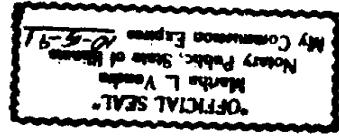 "OFFICIAL SEAL"
Martha L.
Notary Public, State of Illinois
My Commission Expires 10-5-91